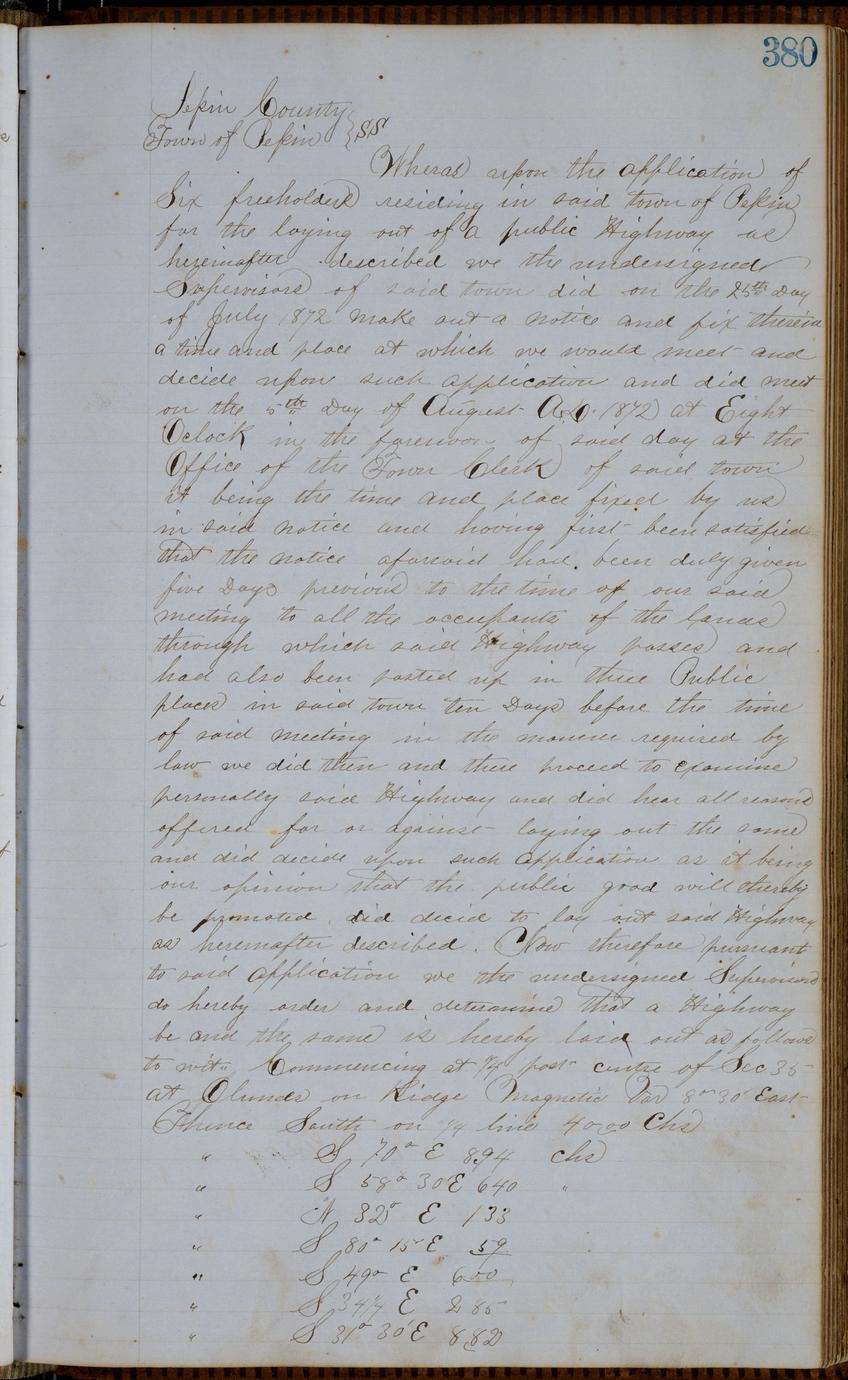 380
Pepin County } SS
Town of Pepin
Wheras upon the application of
Six freeholders residing in said town of Pepin
for the laying out of a public Highway as
hereinafter described we the undersigned
Supervisors of said town did on the 25th Day
of July 1872 make out a notice and fix therein
a time and place at which we would meet and
decide upon such application and did meet
on the 5th Day of August A.D. 1872 at Eight
Oclock in the forenoon of said day at the
Office of the Town Clerk of said town
it being the time and place fixed by us
in said notice and having first been satisfied
that the notice aforsaid had been duly given
five Days previous to the time of our said
meeting to all the occupants of the lands
through which said Highway passes and
had also been posted up in three Public
places in said town ten Days before the time
of said meeting in the manner required by
law we did then and there proceed to examine
personally said Highway and did hear all reasons
offered for or against laying out the same
and did decide upon such application as it being
our opinion that the public good will thereby
be promoted did decide to lay out said Highway
as hereinafter described. Now therefore pursuant
to said application we the undersigned Supervisors
do hereby order and determine that a Highway
be and the same is hereby laid out as follows
to wit. Commencing at 1/4 post centre of Sec 35
at Olunds on Ridge Magnetic Var 8° 30' East
Thence South on 1/4 line 40 00 Chs
" S 70° E 894 chs
" S 58° 30' E 640 "
" N 32° E 133
" S 80° 15' E 59
" S 49° E 600
" S 34 1/2 E 285
" S 31° 30' E 882